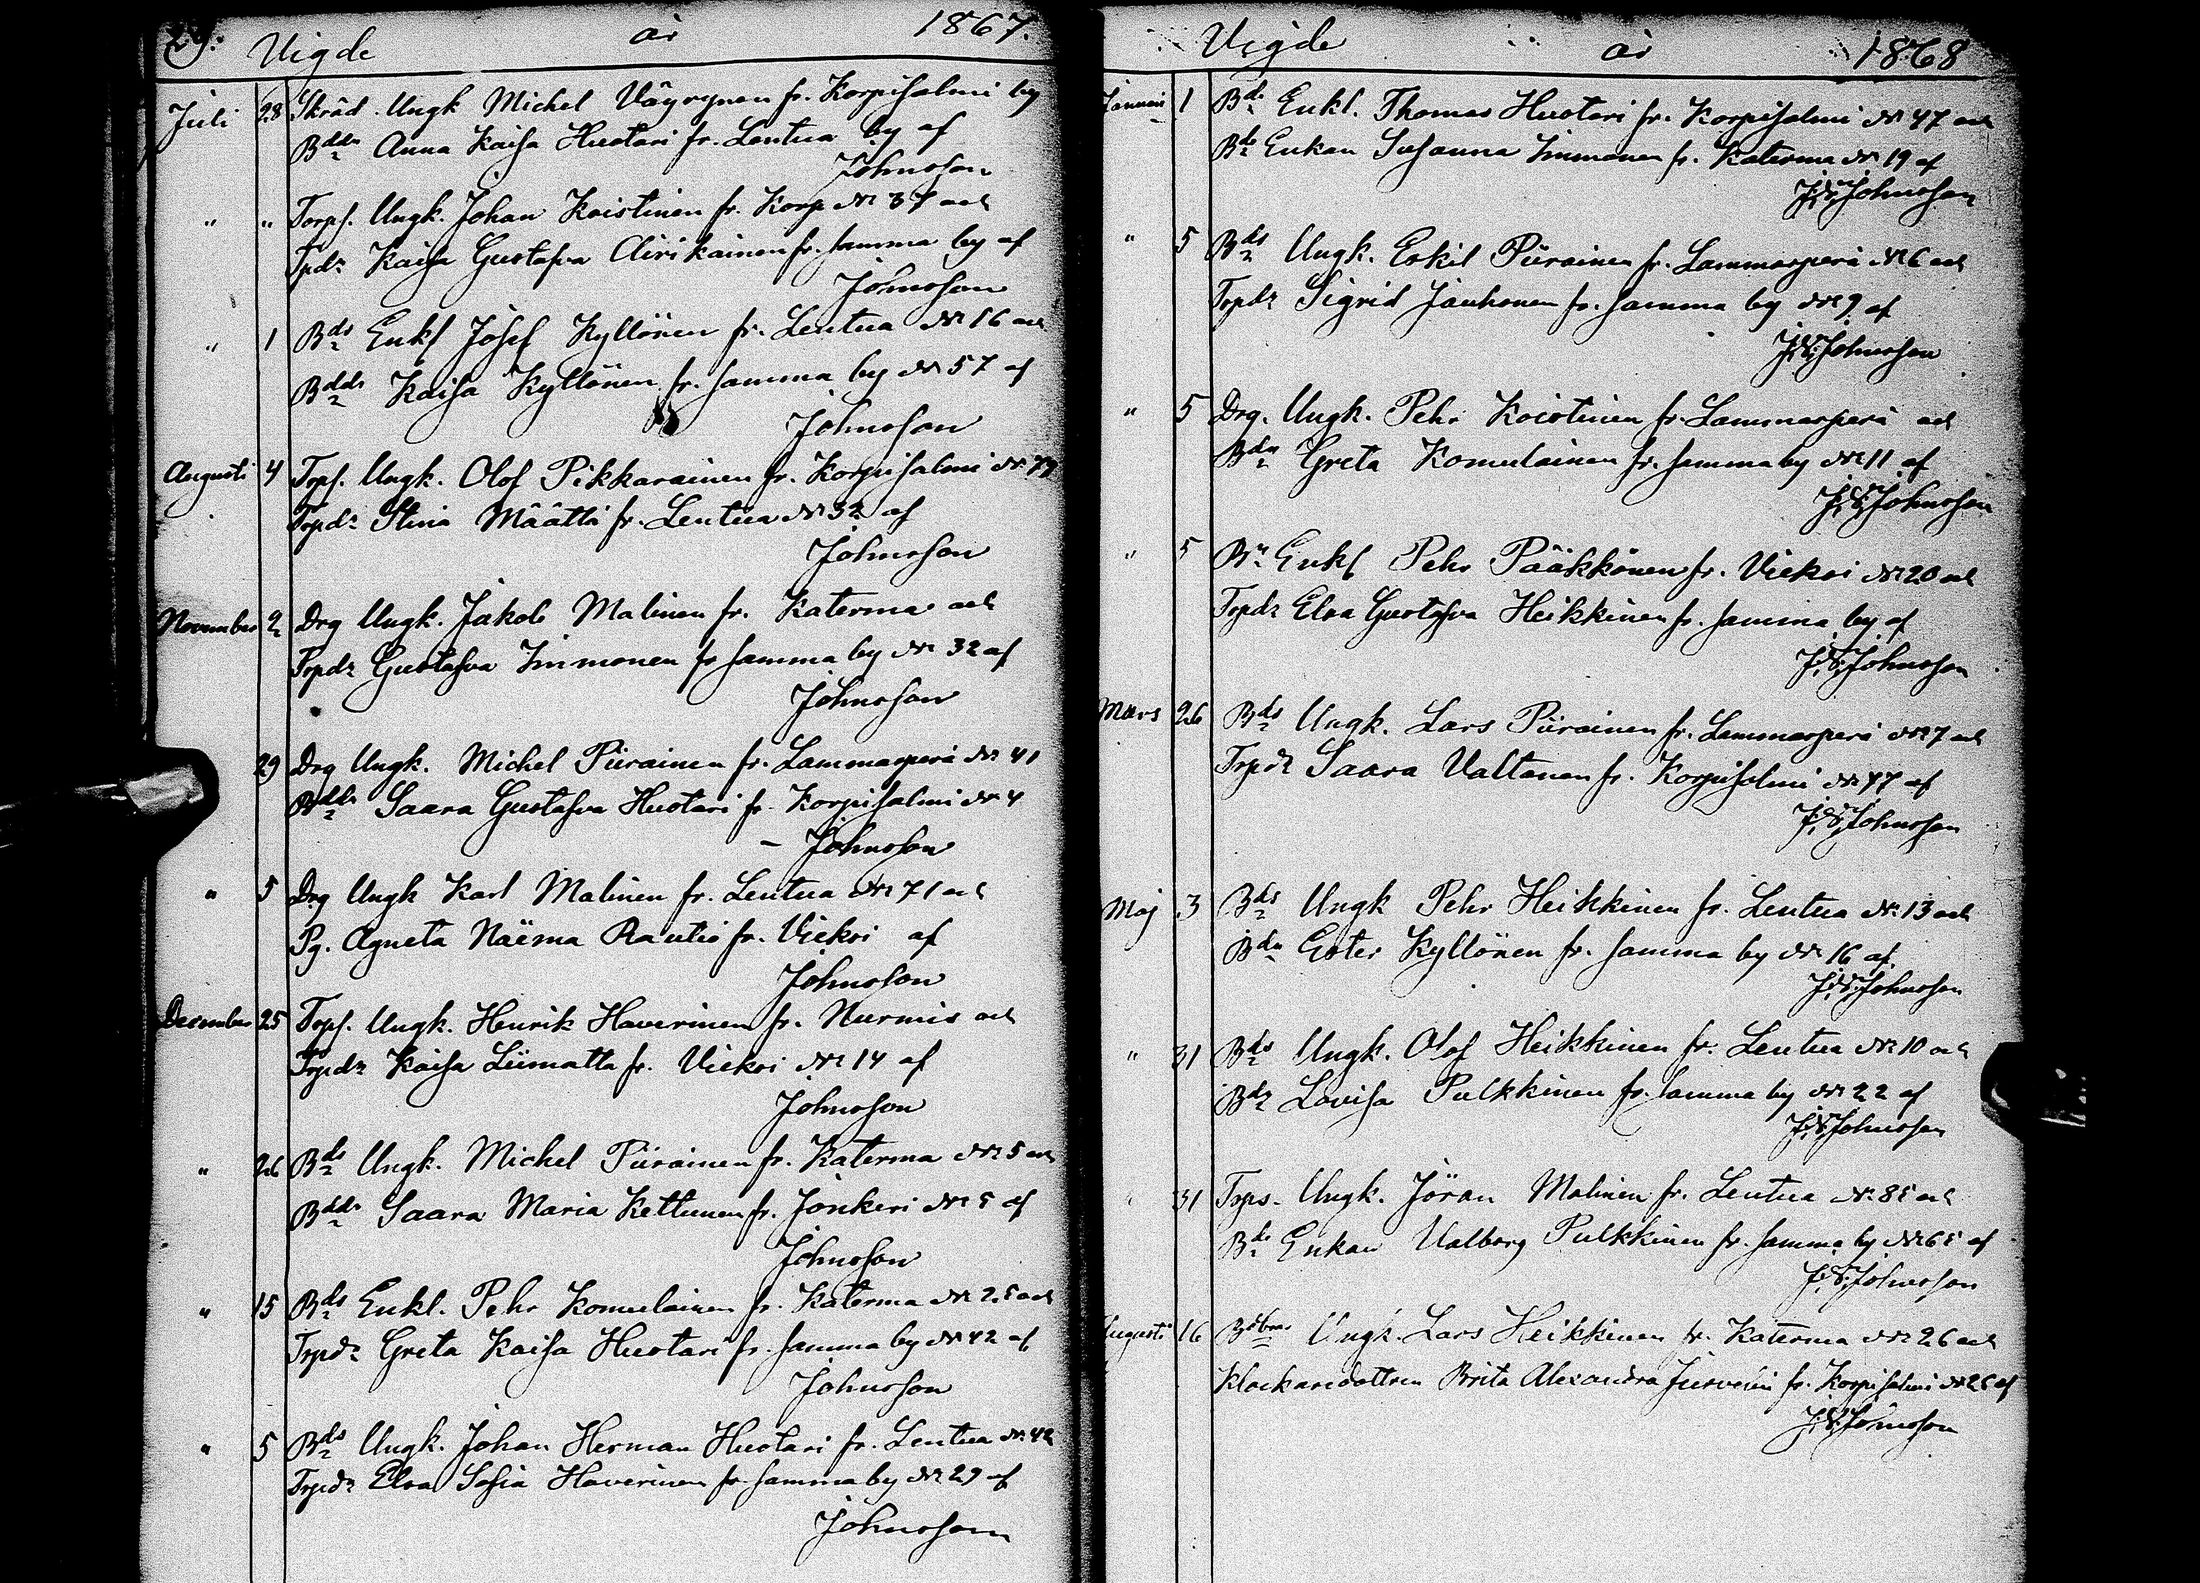 29. Vigde år 1867.
Juli 28 Skräd. Ungk Michel Väyrynen fr. Korpisalmi by
Bddr Anna Kaisa Huotari fr. Lentua by af
Johnsson
" " Torps. Ungk. Johan Koistinen fr. Korp № 37 och
Tpdr Kaisa Gustafva Airikainen fr. samma by af
Johnsson
" 1 Bds Enkl Josef Kyllönen fr. Lentua № 16 och
Bddr Kaisa Kyllönen fr. samma by № 57 af
Johnsson
Augusti 4 Trps. Ungk. Olof Pikkarainen fr. Korpisalmi № 79
Trpdr Stina Määttä fr. Lentua № 32 af
Johnsson
November 2 Drg Ungk. Jakob Malinen fr. Katerma och
Trpdr Gustafva Immonen fr samma by № 32 af
Johnsson
29 Drg Ungk. Michel Piirainen fr. Lammasperä № 41
Bddr Saara Gustafva Huotari fr. Korpisalmi № 4
- Johnsson
" 5 Drg Ungk Karl Malinen fr. Lentua № 71 och
Pg. Agneta Naëma Rautio fr. Vieksi af
Johnsson
December 25 Trps. Ungk. Henrik Haverinen fr. Nurmis och
Trpdr Kaisa Liimatta fr. Vieksi № 14 af
Johnsson
" 26 Bds Ungk. Michel Piirainen fr. Katerma № 5 och
Bddr Saara Maria Kettunen fr. Jonkeri № 5 af
Johnsson
" 15 Bds Enkl. Pehr Komulainen fr. Katerma № 25 och
Trpdr Greta Kaisa Huotari fr. samma by № 42 af
Johnsson
" 5 Bds Ungk. Johan Herman Huotari fr. Lentua № 42
Trpdr Elsa Sofia Haverinen fr samma by № 29 af
Johnsson
Vigde år 1868
Januari 1 Bds Enkl. Thomas Huotari fr. Korpisalmi № 47 och
Bds Enkan Susanna Immonen fr. Katerma № 19 af
J. V. Johnsson
" 5 Bds Ungk. Eskil Piirainen fr. Lammasperä № 6 och
Trpdr Sigrid Jauhonen fr. samma by № 9 af
J. V. Johnsson
" 5 Drg. Ungk. Pehr Koistinen fr. Lammasperä och
Bdn Greta Komulainen fr. samma by № 11 af
J. V. Johnsson
" 5 Bn Enkl Pehr Pääkkönen fr. Vieksi № 20 och
Trpdr Elsa Gustafva Heikkinen fr. samma by af
J. V. Johnsson
Mars 26 Bds Ungk. Lars Piirainen fr. Lammasperä № 7 och
Trpdr Saara Valtanen fr. Korpisalmi № 77 af
J. V. Johnsson
Maj 3 Bds Ungk Pehr Heikkinen fr. Lentua № 13 och
Bdn Ester Kyllönen fr. samma by № 16 af
J. V. Johnsson
" 31 Bds Ungk. Olof Heikkinen fr. Lentua № 10 och
Bdr Lovisa Pulkkinen fr. samma by № 22 af
J. V. Johnsson
" 31 Trps. Ungk. Jöran Malinen fr. Lentua № 85 och
Bds Enkan Valborg Pulkkinen fr. samma by № 65 af
J. V. Johnsson
Augusti 16 Ungk. Lars Heikkinen fr. Katerma № 26 och
Klockaredottren Brita Alexandra fr. Korpisalmi № 26 af
J. V. Johnsson